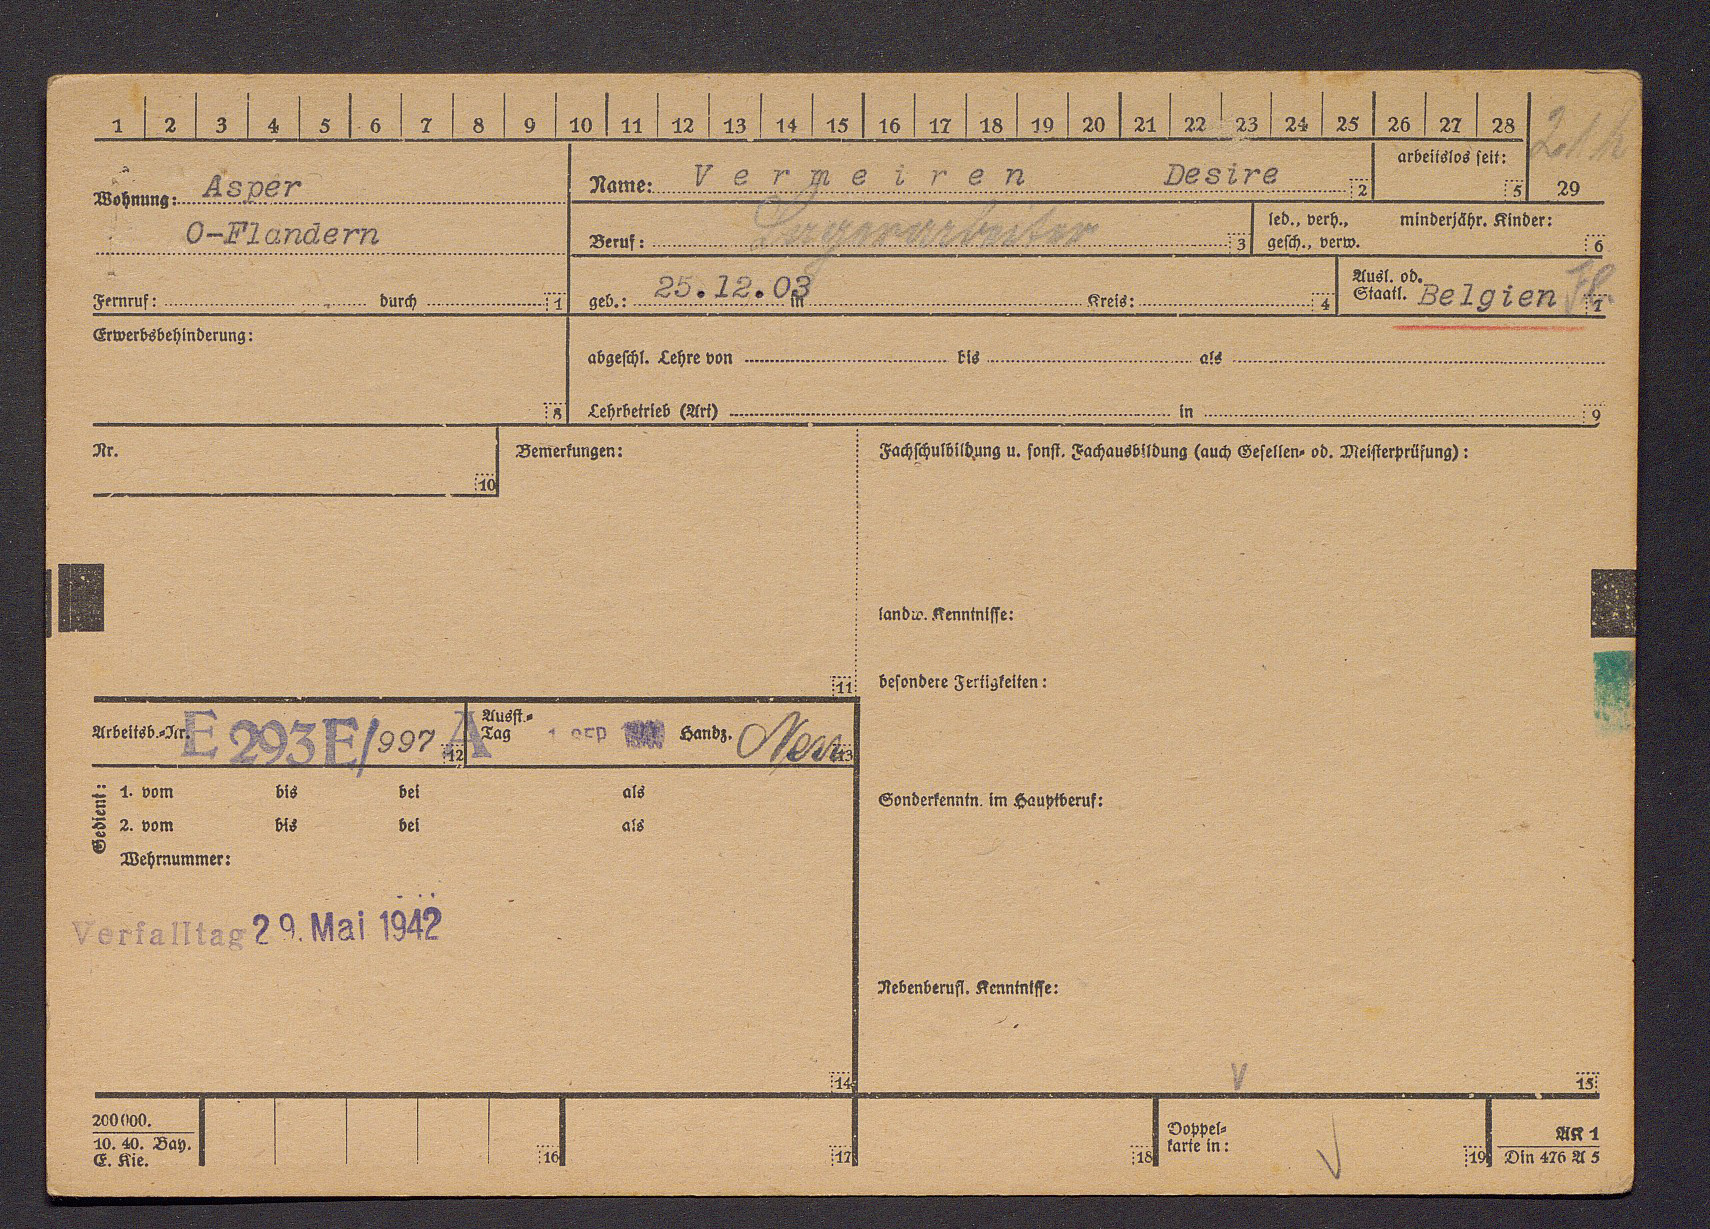 1 2 3 4 5 6 7 8 9 10 11 12 13 14 15 16 17 18 19 20 21 22 23 24 25 26 27 28
29
Wohnung: Asper
O-Flandern
Fernruf: durch 1
Name: Vermeiren Desire 2
arbeitslos seit: 5
Beruf: Lagerarbeiter 3
led., verh., minderjähr. Kinder:
gesch., verw. 6
geb.: 25.12.03 in Kreis: 4
Ausl. od.
Staatl. Belgien Fl. 7
Erwerbsbehinderung:
8
abgeschl. Lehre von bis als
Lehrbetrieb (Art) in 9
Nr.
10
Bemerkungen:
11
Fachschulbildung u. sonst. Fachausbildung (auch Gesellen- od. Meisterprüfung):
landw. Kenntnisse:
besondere Fertigkeiten:
Sonderkenntn. im Hauptberuf:
Nebenberufl. Kenntnisse:
15
Arbeitsb.-Nr. E 293E/997 A 12
Ausst.-
Tag 1. SEP Handz. 13
Gedient:
1. vom bis bei als
2. vom bis bei als
Wehrnummer:
Verfalltag 29. Mai 1942
14
200000.
10. 40. Bay.
E. Kie.
16 17 18
Doppel-
karte in: 19
AK 1
Din 476 A 5